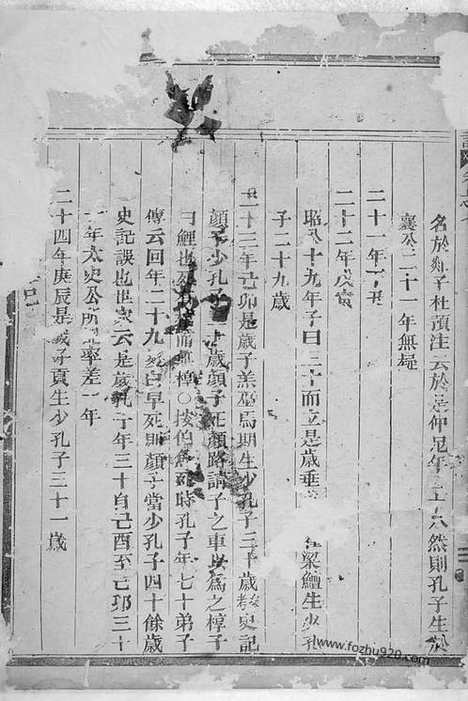 名於顏子杜預注云於是仲尼年三十六然則孔子生於
襄公二十一年無疑
二十一年丁丑
二十二年戊寅
昭公十九年子曰三十而立是歲垂 梁鱣生少孔
子二十九歲
二十三年己卯是歲子羔巫馬期生少孔子三十歲 史記
顏子少孔子三十歲顏子死顏路請子之車以為之椁子
曰鯉也死有棺而無椁○按伯魚死時孔子年七十弟子
傳云回年二十九 死白早死則顏子當少孔子四十餘歲
史記誤也世家云是歲孔子年三十自己酉至己卯三十
一年太史公所 率差一年
二十四年庚辰是歲子貢生少孔子三十一歲
www.fozhu920.com